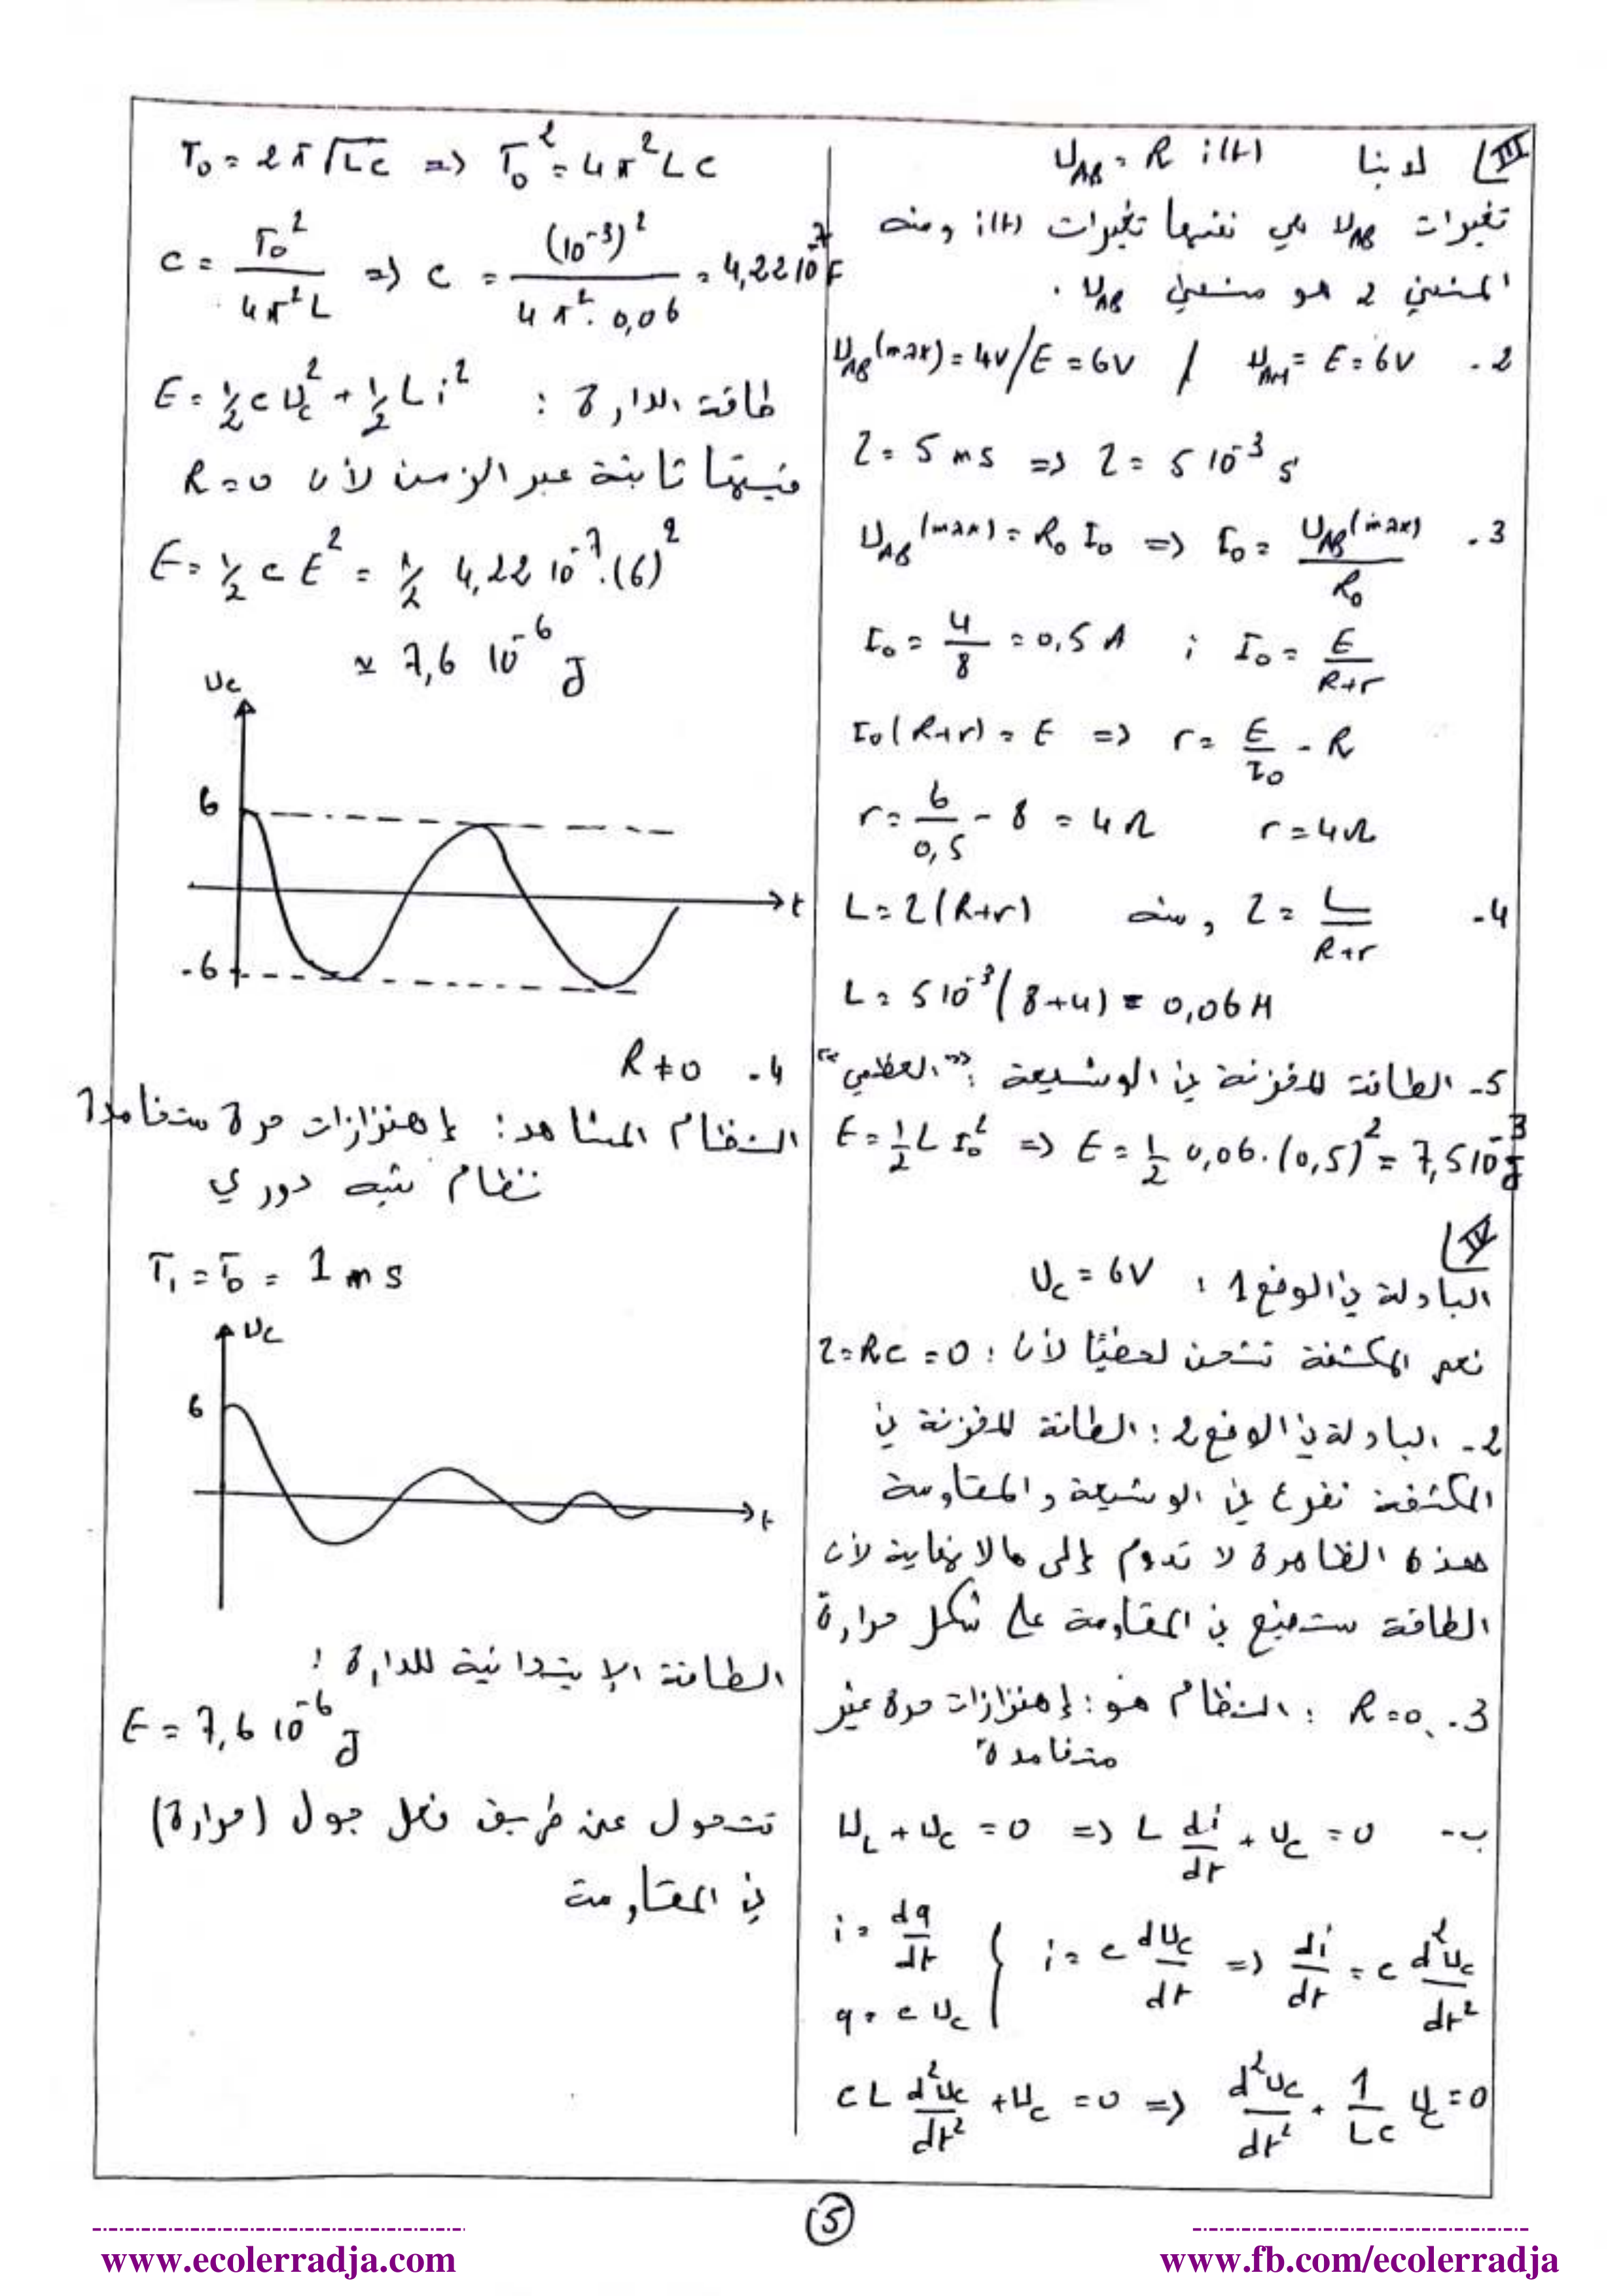 III) لدينا U_AB = R i(t)
تغيرات U_AB هي نفسها تغيرات i(t) ومنه
المنحنى 2 هو منحنى U_AB .
2- U_AM = E = 6V / U_AB(max) = 4V / E = 6V
τ = 5 ms => τ = 5 10^-3 s
3. U_AB(max) = R₀ I₀ => I₀ = U_AB(max) / R₀
I₀ = 4/8 = 0,5 A ; I₀ = E/(R+r)
I₀(R+r) = E => r = E/I₀ - R
r = 6/0,5 - 8 = 4Ω r = 4Ω
4- τ = L/(R+r) ومنه L = τ(R+r)
L = 5 10^-3 (8+4) = 0,06 H
5- الطاقة المخزنة في الوشيعة "العظمى" :
E = 1/2 L I₀² => E = 1/2 0,06 . (0,5)² = 7,5 10^-3 J
IV)
البادلة في الوضع 1 : U_C = 6V
نعم المكثفة تشحن لحظيًا لأن : τ = RC = 0
2- البادلة في الوضع 2 : الطاقة المخزنة في
المكثفة تفرغ في الوشيعة والمقاومة
هذه الظاهرة لا تدوم إلى مالانهاية لأن
الطاقة ستضيع في المقاومة على شكل حرارة
3. R = 0 : النظام هو : إهتزازات حرة غير
متخامدة
ب- U_L + U_C = 0 => L di/dt + U_C = 0
i = dq/dt
q = C U_C } i = C dU_C/dt => di/dt = C d²U_C/dt²
CL d²U_C/dt² + U_C = 0 => d²U_C/dt² + 1/LC U_C = 0
T₀ = 2π√LC => T₀² = 4π²LC
C = T₀²/4π²L => C = (10^-3)²/4π².0,06 = 4,22 10^-7 F
طاقة الدارة : E = 1/2 C U_C² + 1/2 L i²
قيمتها ثابتة عبر الزمن لأن R = 0
E = 1/2 C E² = 1/2 4,22 10^-7 . (6)²
≃ 7,6 10^-6 J
U_C
6
t
-6
4- R ≠ 0
النظام المشاهد : إهتزازات حرة متخامدة
نظام شبه دوري
T₁ = T₀ = 1 ms
U_C
6
t
الطاقة الإبتدائية للدارة :
E = 7,6 10^-6 J
تتحول عن طريق فعل جول (حرارة)
في المقاومة
5
www.ecolerradja.com
www.fb.com/ecolerradja